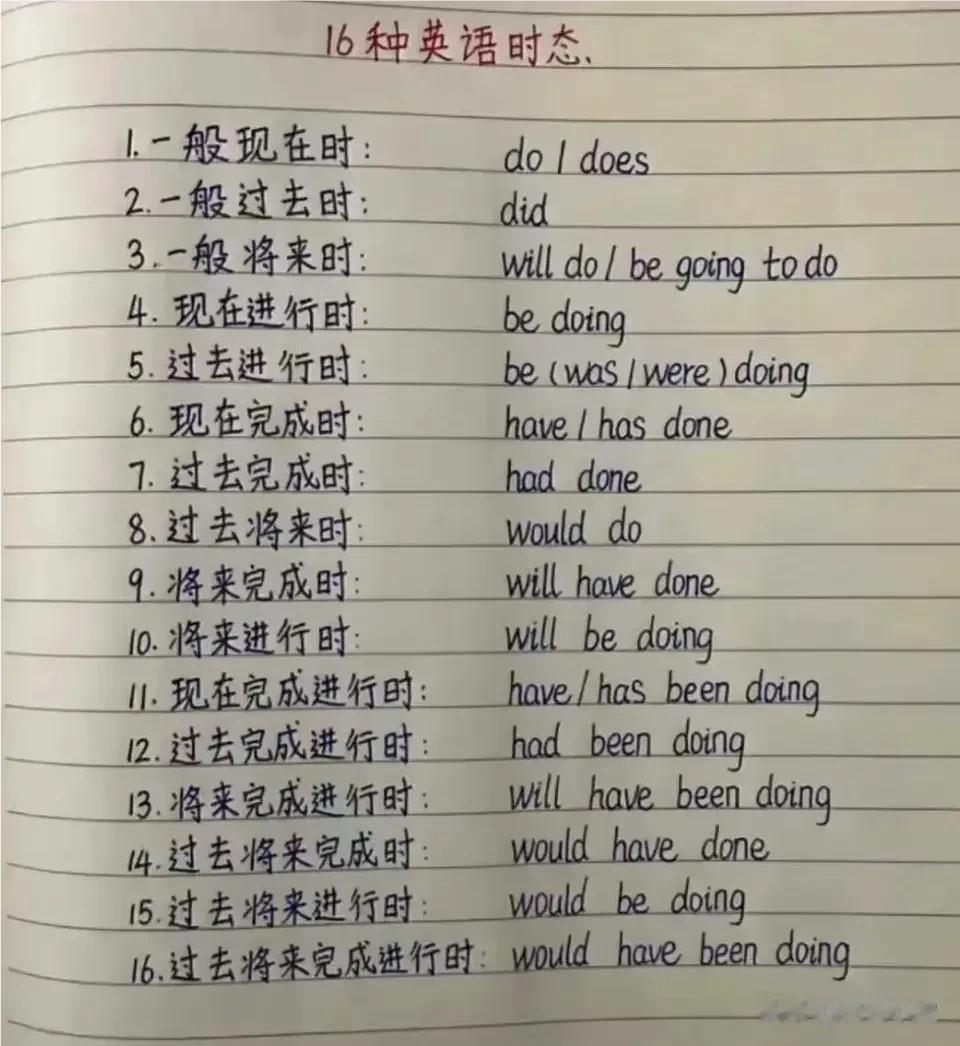 16种英语时态.
1.一般现在时: do / does
2.一般过去时: did
3.一般将来时: will do / be going to do
4.现在进行时: be doing
5.过去进行时: be (was / were) doing
6.现在完成时: have / has done
7.过去完成时: had done
8.过去将来时: would do
9.将来完成时: will have done
10.将来进行时: will be doing
11.现在完成进行时: have / has been doing
12.过去完成进行时: had been doing
13.将来完成进行时: will have been doing
14.过去将来完成时: would have done
15.过去将来进行时: would be doing
16.过去将来完成进行时: would have been doing